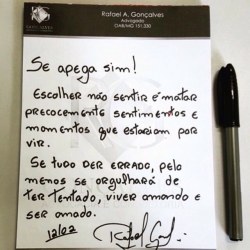 Rafael A. Gonçalves
Advogado
OAB/MG 151.330
Se apega sim!
Escolher não sentir é matar
precocemente sentimentos e
momentos que estariam por
vir.
Se tudo der errado, pelo
menos se orgulhará de
ter tentado, viver amando e
ser amado.
12/02